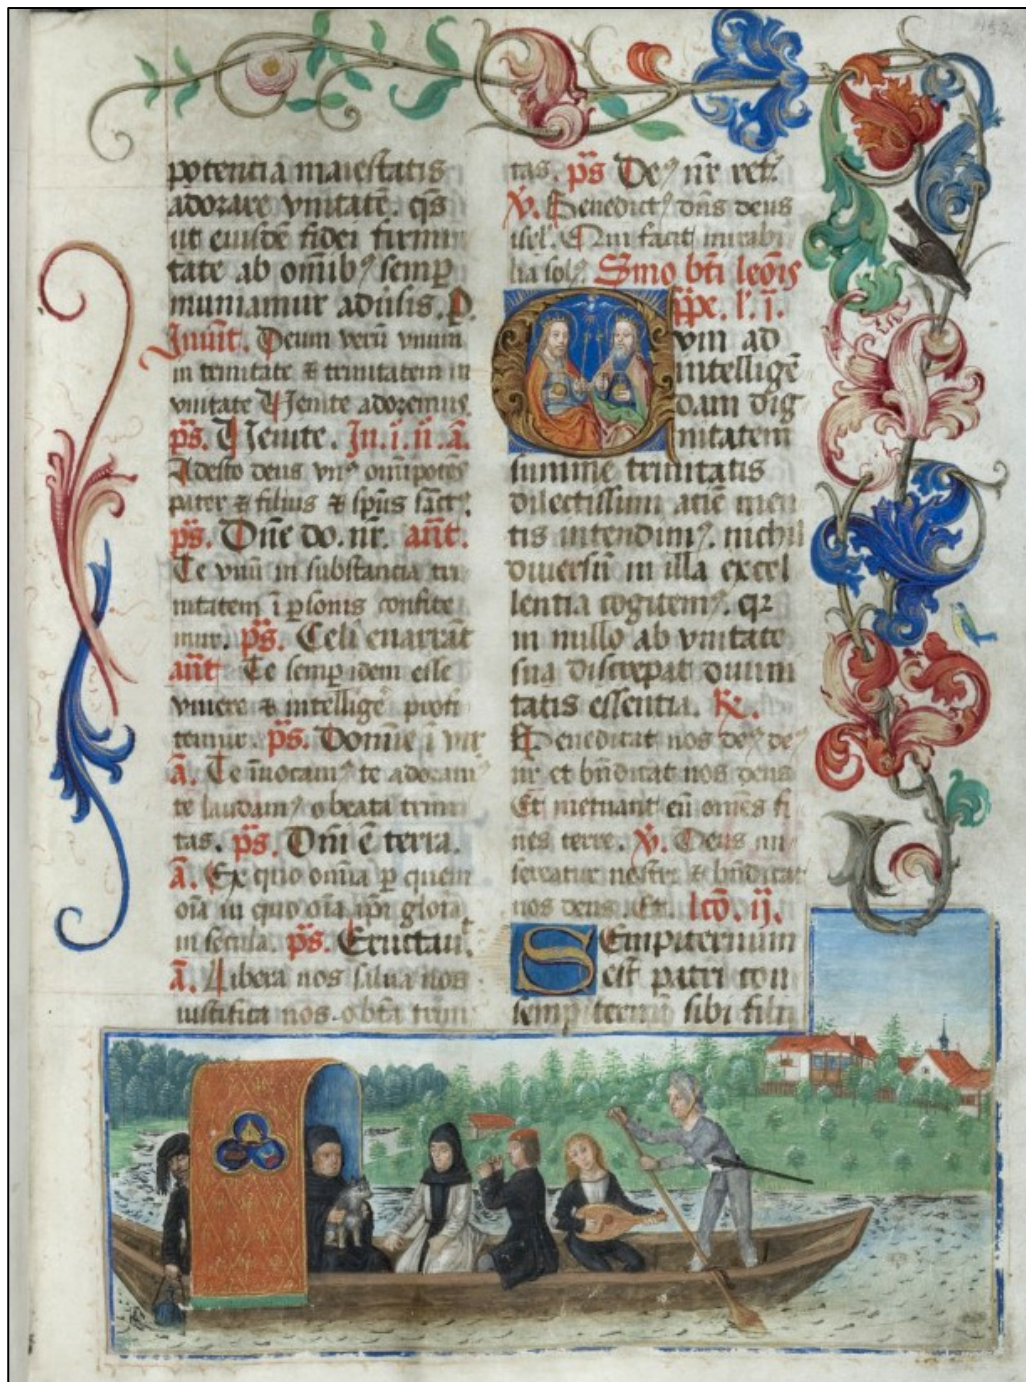 potentia maiestatis
adorare vnitatē. qs
ut eiusdē fidei firmi
tate ab omībꝰ semp
muniamur adusis. P.
Inuit. Deum verū vnum
in trinitate & trinitatem in
vnitate Uenite adoremus.
ps. Uenite. In. i. n. a.
Adesto deus vnꝰ omīpotēs
pater & filius & spūs sāctꝰ.
ps. Dn̄e do. nr̄. an̄t.
Te vnū in substancia tri
nitatem ī psonis confite
mur. ps. Celi enarrāt
an̄t Te semp idem esse
viuere & intelligē profi
temur. ps. Domīe ī vir
a. Te īuocamꝰ te adoramꝰ
te laudamꝰ o beata trini
tas. ps. Dn̄i ē terra.
a. Ex quo omīa p quem
oīa in quo oīa ipī gloria
in secula. ps. Eructauit
a. Libera nos salua nos
iustifica nos o btā trini
tas. ps. Deꝰ nr̄ ref.
V. Benedictꝰ dn̄s deus
isrl. Qui facit mirabi
lia solꝰ Smo bti leōis
ppe. l. i.
vm ad
intelligē
dam dig
nitatem
summe trinitatis
dilectissimi aciē men
tis intendimꝰ. nichil
diuersū in illa excel
lentia cogitemꝰ. qr
in nullo ab vnitate
sua discrepat diuini
tatis essentia. R.
Benedicat nos deꝰ deꝰ
nr̄ et bn̄dicat nos deus
Et metuant eū omēs fi
nes terre. V. Deus mi
sereatur nostri & bn̄dicat
nos deus. Et. lcō. ij.
SEmpiternum
est patri con
sempiternū sibi filii